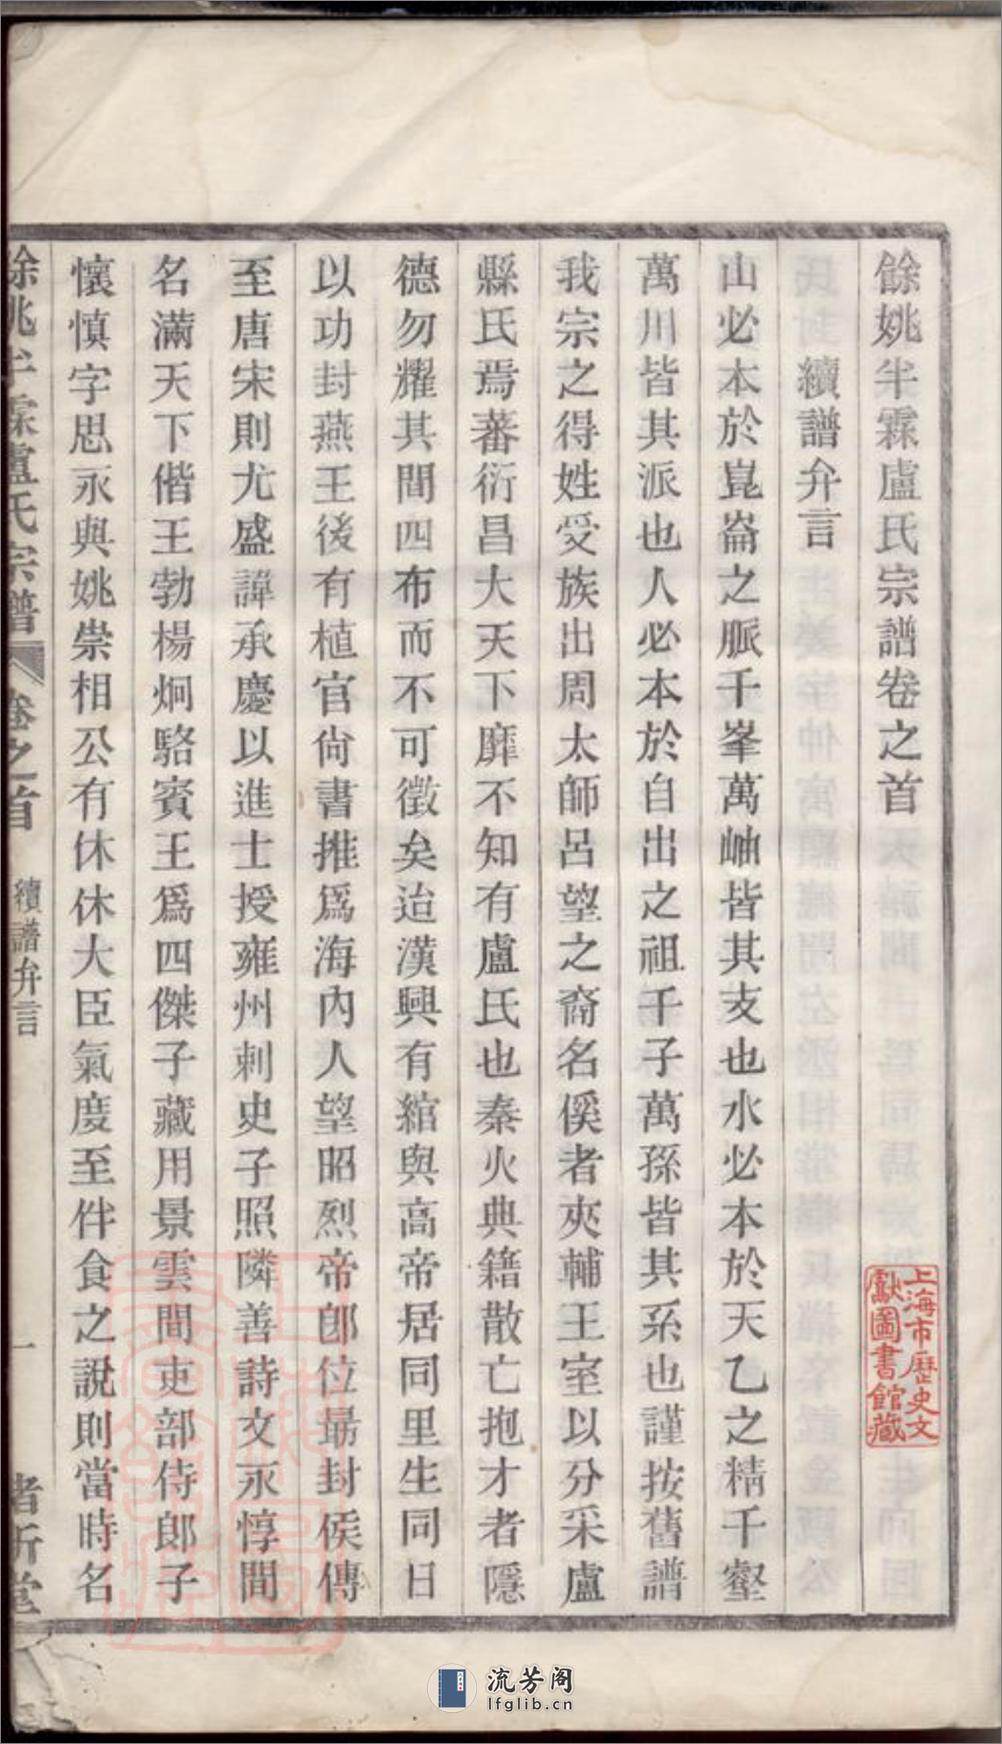 餘姚半霖盧氏宗譜卷之首
續譜弁言
山必本於崑崙之脈千峯萬岫皆其支也水必本於天乙之精千壑
萬川皆其派也人必本於自出之祖千子萬孫皆其系也謹按舊譜
我宗之得姓受族出周太師呂望之裔名傒者夾輔王室以分采盧
縣氏焉蕃衍昌大天下靡不知有盧氏也秦火典籍散亡抱才者隱
德勿耀其間四布而不可徵矣迨漢興有綰與高帝居同里生同日
以功封燕王後有植官尙書推爲海內人望昭烈帝卽位最封侯傳
至唐宋則尤盛諱承慶以進士授雍州刺史子照隣善詩文永惇間
名滿天下偕王勃楊炯駱賓王爲四傑子藏用景雲間吏部侍郎子
懷愼字思永與姚崇相公有休休大臣氣度至伴食之說則當時名
餘姚半霖盧氏宗譜 卷之首 續譜弁言 一 者斯堂
上海市歷史文
獻圖書館藏
流芳阁
lfglib.cn